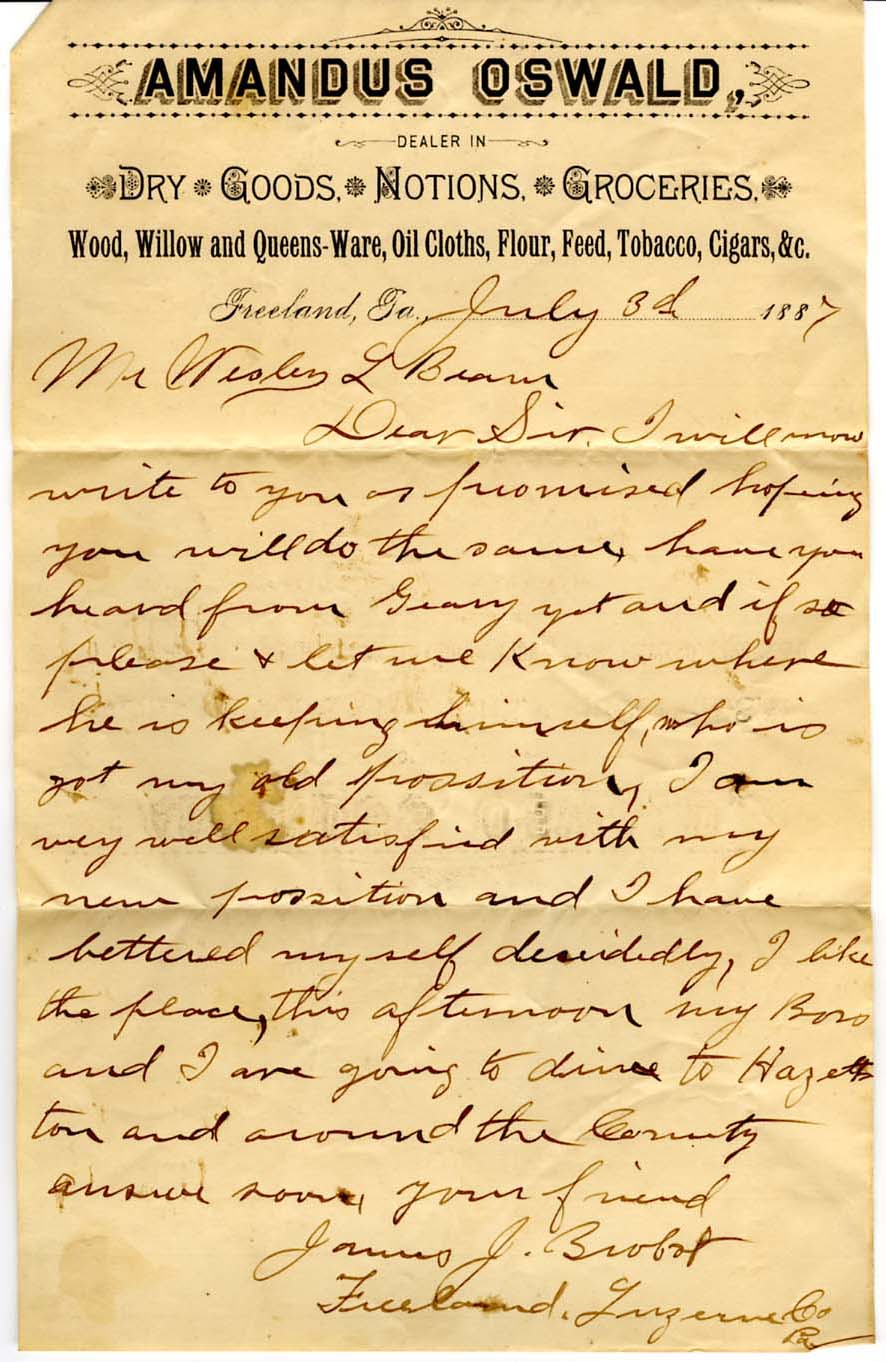 AMANDUS OSWALD,
DEALER IN
DRY GOODS, NOTIONS, GROCERIES,
Wood, Willow and Queens-Ware, Oil Cloths, Flour, Feed, Tobacco, Cigars, &c.
Freeland, Pa., July 3d 1887
Mr Wesley L Beam
Dear Sir. I will now
write to you as promised hoping
you will do the same, have you
heard from Geary yet and if so
please & let me Know where
he is keeping himself, who is
got my old possition, I am
very well satisfied with my
new possition and I have
bettered myself decidedly, I like
the place, this afternoon my Boss
and I are going to drive to Hazel
ton and around the County
answe soon, your friend
James J. Brobst
Freeland. Luzerne Co
Pa